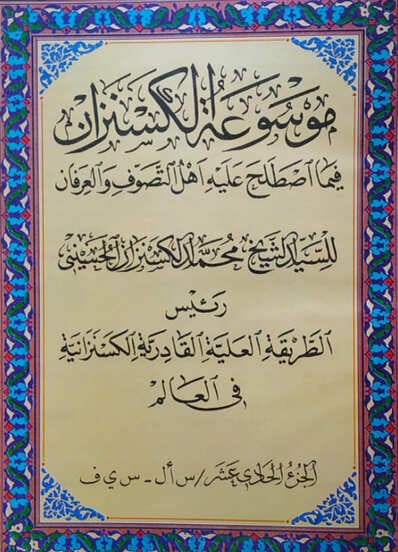 موسوعة الكسنزان
فيما اصطلح عليه أهل التصوف والعرفان
للسيد الشيخ محمد الكسنزان الحسيني
رئيس
الطريقة العلية القادرية الكسنزانية
في العالم
الجزء الحادي عشر / س أ ل - س ي ف